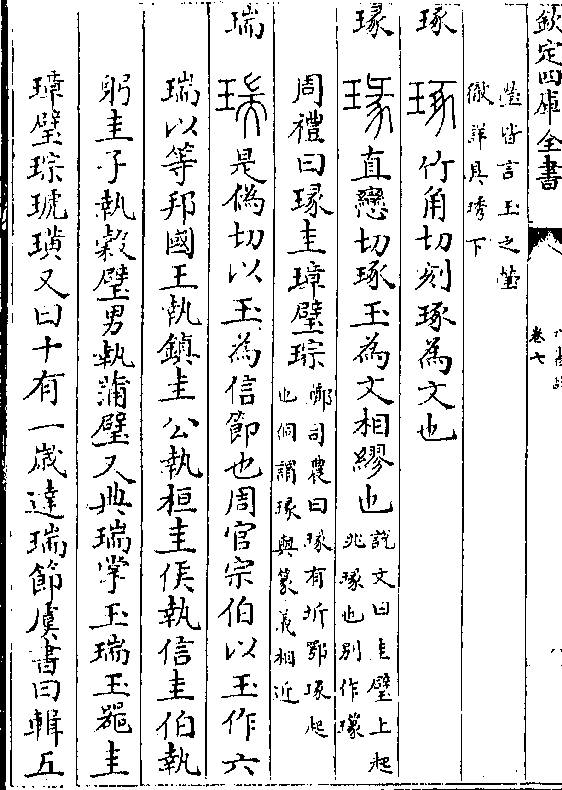 欽定四庫全書
卷七
瑩皆言玉之瑩
徹詳具琇下
琢
琢竹角切刻琢為文也
瑑
瑑直戀切琢玉為文相繆也說文曰圭璧上起
兆瑑也別作瓈
周禮曰瑑圭璋璧琮鄭司農曰瑑有圻鄂瑑起
也侗謂瑑與篆義相近
瑞
瑞是偽切以玉為信節也周官宗伯以玉作六
瑞以等邦國王執鎮圭公執桓圭侯執信圭伯執
躬圭子執穀璧男執蒲璧又典瑞掌玉瑞玉器圭
璋璧琮琥璜又曰十有一歲達瑞節虞書曰輯五